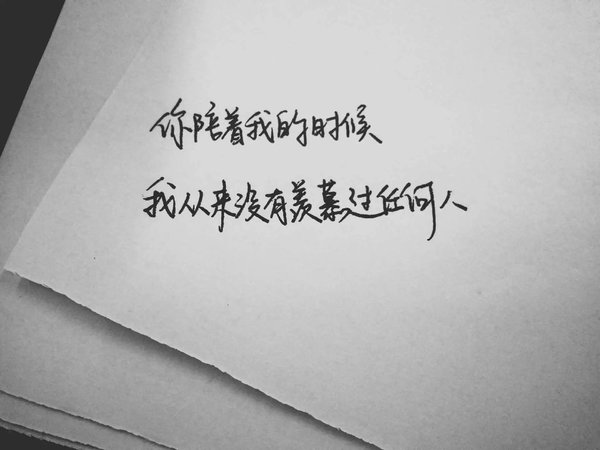 你陪着我的时候
我从来没有羡慕过任何人